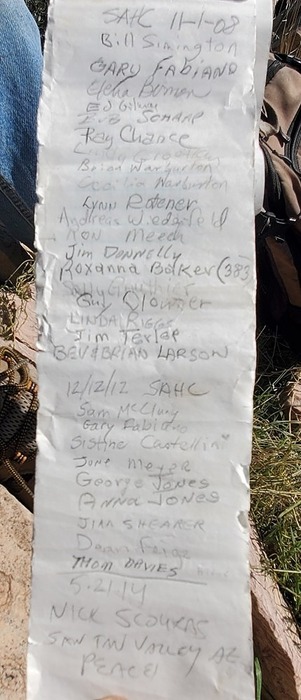 SAHC 11-1-08
Bill Simington
GARY FABIANO
Elena
ED
Eva SCHARR
Ray Chance
Cindy
Brian Warburton
Cecilia Warburton
LYNN Rotener
Andreas Wiedefeld
RON Mezch
Jim DONNELLY
ROXANNA BAKER (383)
Sally Gauthier
Guy
LINDA RIGGS
Jim Terlep
BEV & BRIAN LARSON
12/12/12 SAHC
Sam McClung
Gary Fabiano
Sistine Castellini
June Meyer
George Jones
ANNA JONES
JIMM SHEARER
Dean
THOM DAVIES
5-21-14
NICK SCOURAS
SAN TAN VALLEY AZ
PEACE!